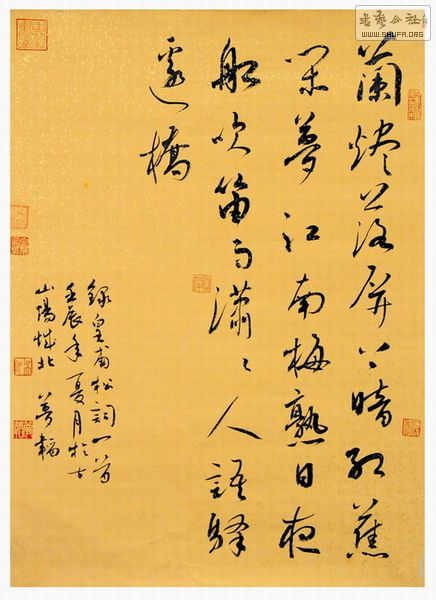 書藝公社
WWW.SHUFA.ORG
蘭燼落屏上暗紅蕉
閑夢江南梅熟日夜
船吹笛雨瀟〻人語驛
邊橋
錄皇甫松詞一首
壬辰年夏月於古
山陽城北